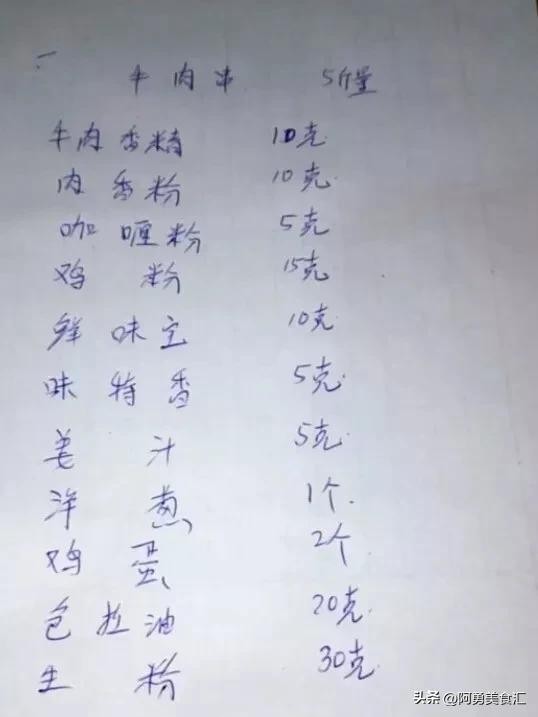 牛肉串 5斤量
牛肉香精 10克
肉香粉 10克
咖喱粉 5克
鸡粉 15克
鲜味宝 10克
味特香 5克
姜汁 5克
洋葱 1个
鸡蛋 2个
色拉油 20克
生粉 30克
头条 @阿勇美食汇